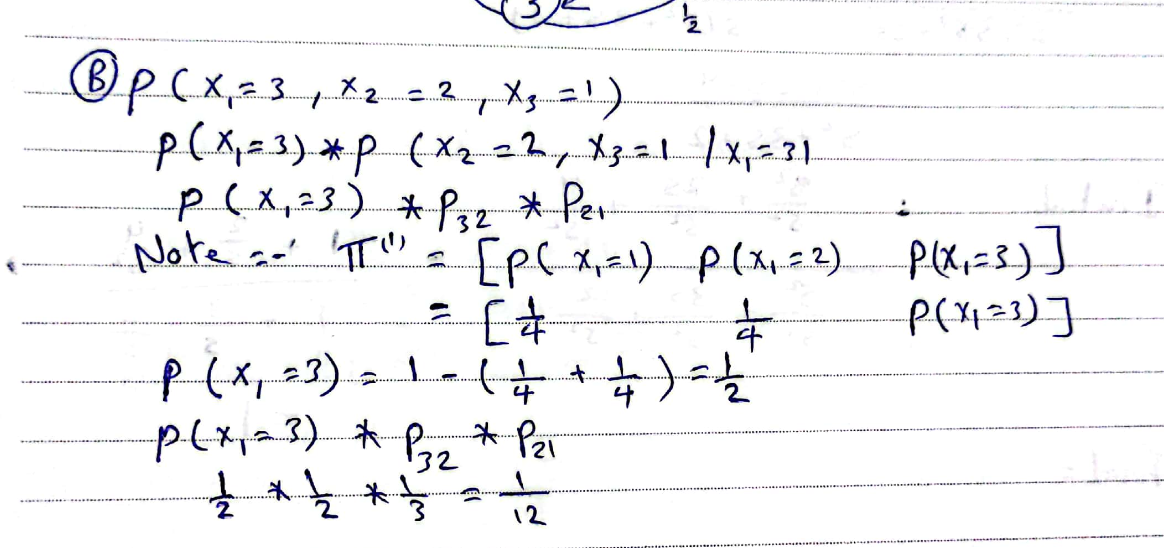 3 1/2
Ⓑ P(X₁=3, X₂=2, X₃=1)
P(X₁=3) * P (X₂=2, X₃=1 / X₁=3)
P(X₁=3) * P₃₂ * P₂₁
Note :- π⁽¹⁾ = [P(X₁=1) P(X₁=2) P(X₁=3)]
= [1/4 1/4 P(X₁=3)]
P(X₁=3) = 1 - (1/4 + 1/4) = 1/2
P(X₁=3) * P₃₂ * P₂₁
1/2 * 1/2 * 1/3 = 1/12